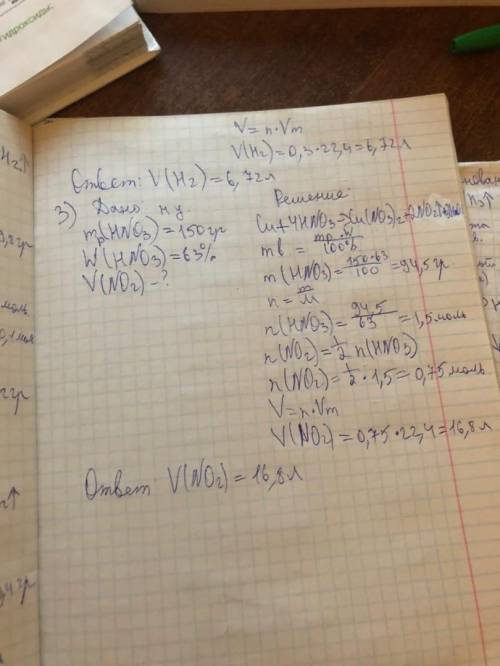 гидроксиды:
V=n·Vm
V(H2)=0,3·22,4=6,72л
Ответ: V(H2)=6,72л
3) Дано н.у
mp(HNO3)=150гр
W(HNO3)=63%
V(NO2)-?
Решение:
Cu+4HNO3→Cu(NO3)2+2NO2↑+
mв = mp·W/100%
m(HNO3)=150·63/100=94,5гр
n=m/M
n(HNO3)=94,5/63=1,5моль
n(NO2)=1/2 n(HNO3)
n(NO2)=1/2·1,5=0,75моль
V=n·Vm
V(NO2)=0,75·22,4=16,8л
Ответ V(NO2)=16,8л